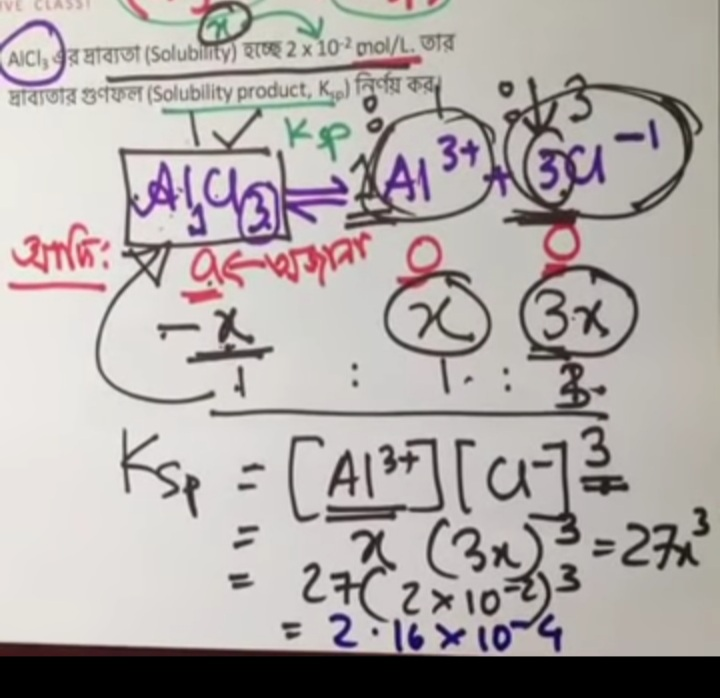 IVE CLASS!
x
AlCl₃ এর দ্রাব্যতা (Solubility) হচ্ছে 2 x 10⁻² mol/L. তার
দ্রাব্যতার গুণফল (Solubility product, Kₛₚ) নির্ণয় কর।
1 ✓ Ksp 1 3
Al₁Cl₃ ⇌ 1Al³⁺ + 3Cl⁻¹
আদি: a ← অজানা 0 0
-x x 3x
1 : 1 : 3
Ksp = [Al³⁺][Cl⁻]³
= x (3x)³ = 27x³
= 27(2×10⁻²)³
= 2.16×10⁻⁴